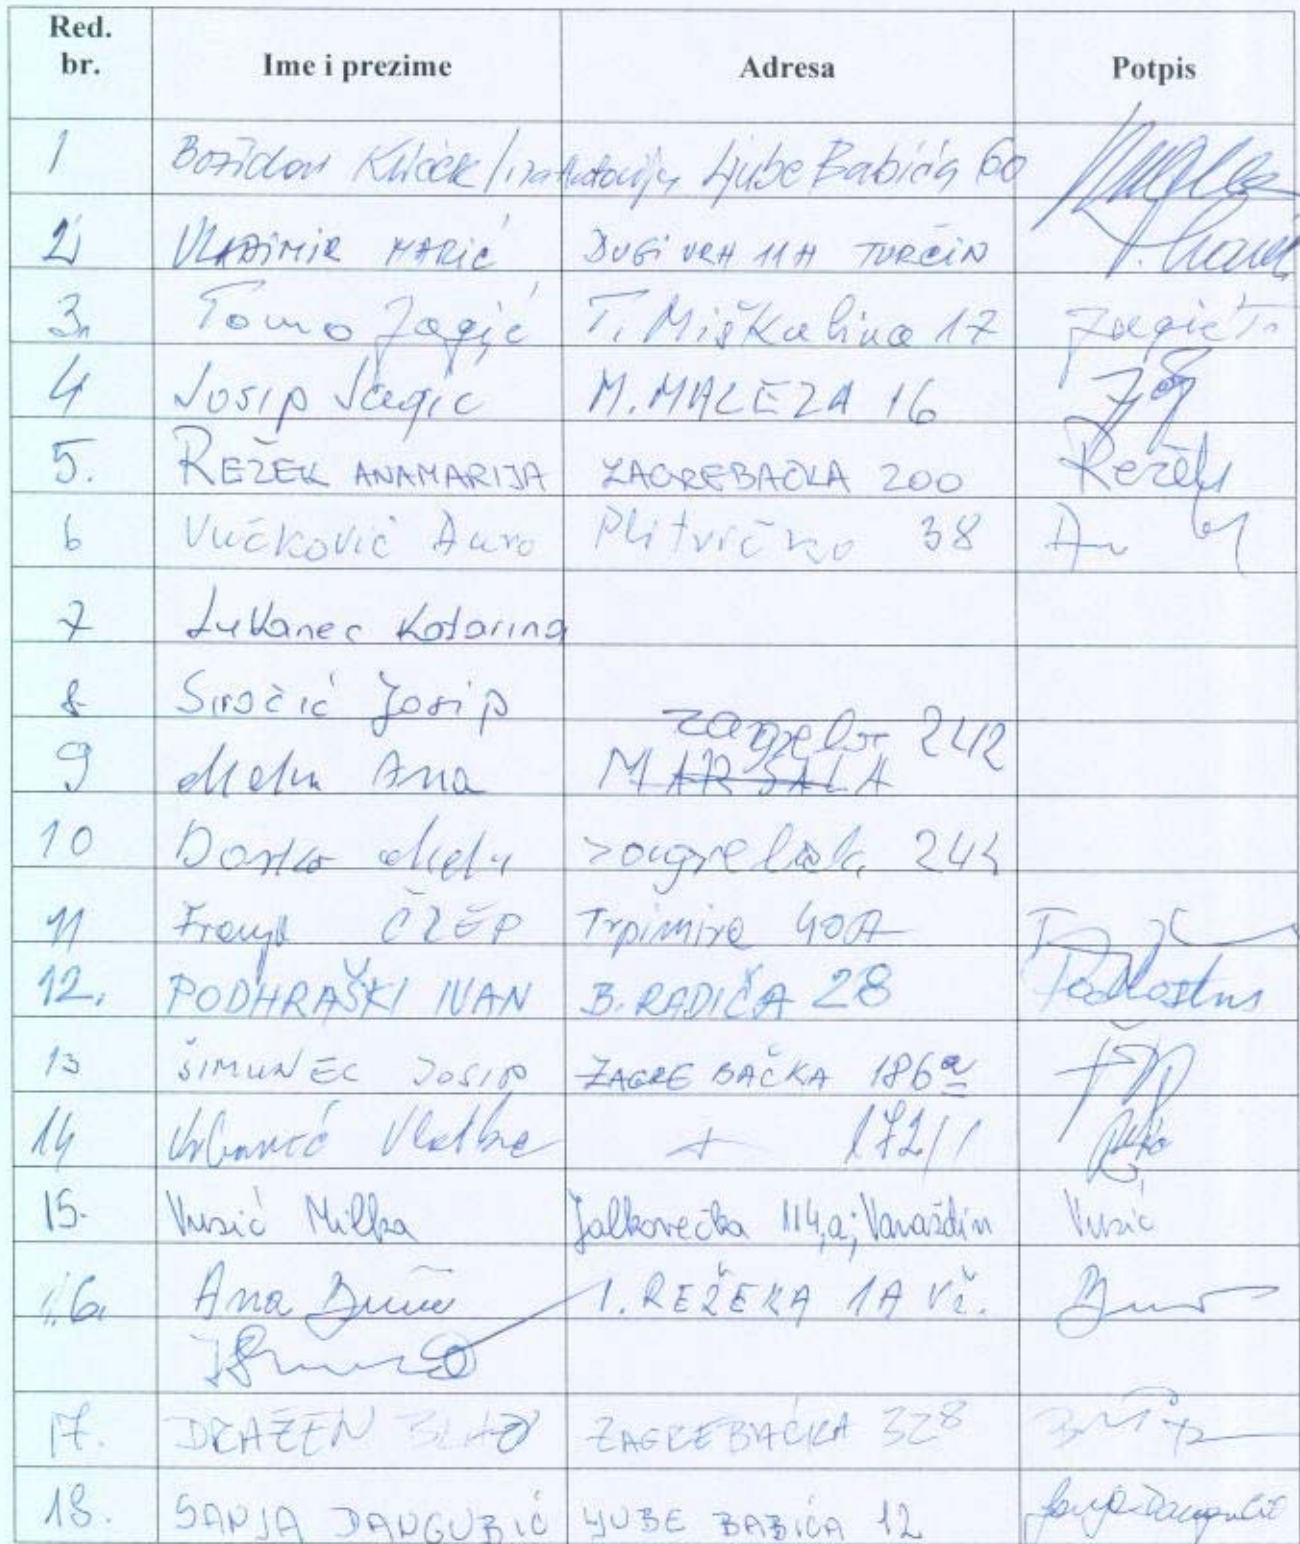 Red. br. Ime i prezime Adresa Potpis
1 Božidar Kliček / Ljube Babića 60
2 VLADIMIR MARIĆ DUGI VRH 11H TURČIN
3. Tomo Jagić T. Miškulina 17 Jagić T.
4 Josip Jagić M. MALEZA 16
5. REŽEK ANAMARIJA ZAGREBAČKA 200 Režek
6 Vučković Đuro Plitvička 38
7 Lukanec Katarina
8 Siročić Josip
9 Ana zagrebr 242
MARŠALA
10 zagrebač. 244
11 Franjo ČZEP Trpimira 40A
12. PODHRAŠKI IVAN B. RADIĆA 28
13 ŠIMUNEC JOSIP ZAGREBAČKA 186a
14 Urbanić Vlatka 172/1
15. Vusić Milka Jalkovečka 114,a; Varaždin Vusić
16. Ana I. REŽEKA 1A Vž.
17. DRAŽEN ZAGREBAČKA 328
18. SANJA DANGUBIĆ LJUBE BABIĆA 12 Sanja Dangubić